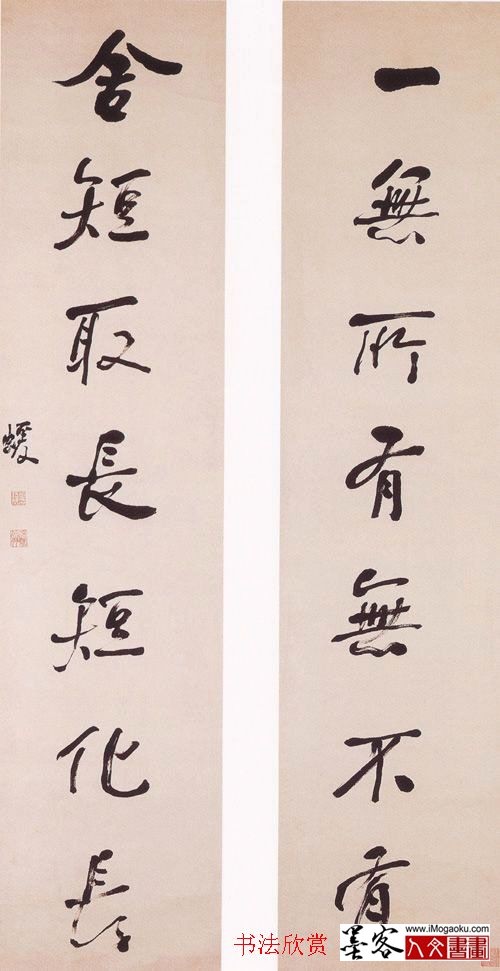 一無所有無不有
舍短取長短化長
媛叟
书法欣赏
墨客
www.iMogaoku.com
人文書畫